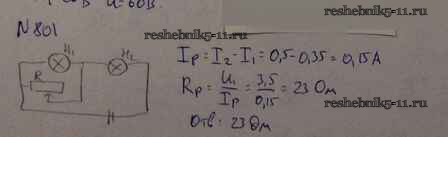 U=60В.
reshebnik5-11.ru
N801
reshebnik5-11.ru
H₁
H₂
R
Iр = I₂ - I₁ = 0,5 - 0,35 = 0,15А
Rр = U₁/Iр = 3,5/0,15 = 23 Ом
reshebnik5-11.ru
reshebnik5-11.ru
Отв: 23 Ом